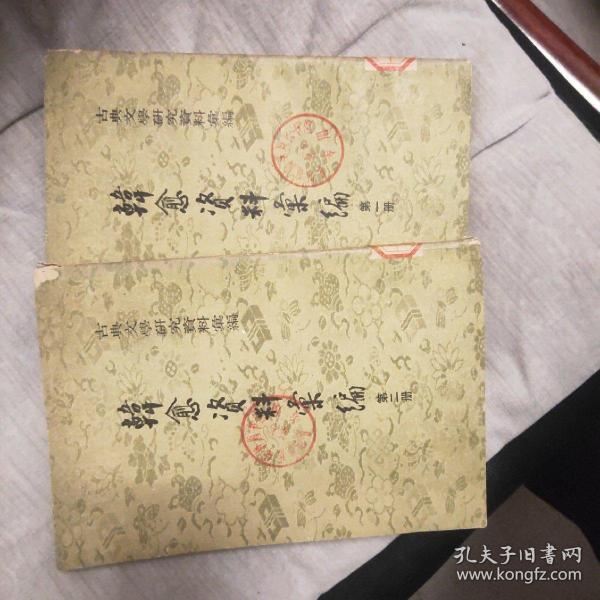 古典文學研究資料彙編
韓愈资料彙编
第一册
古典文學研究資料彙編
韓愈资料彙编
第二册
孔夫子旧書网
www.kongfz.com